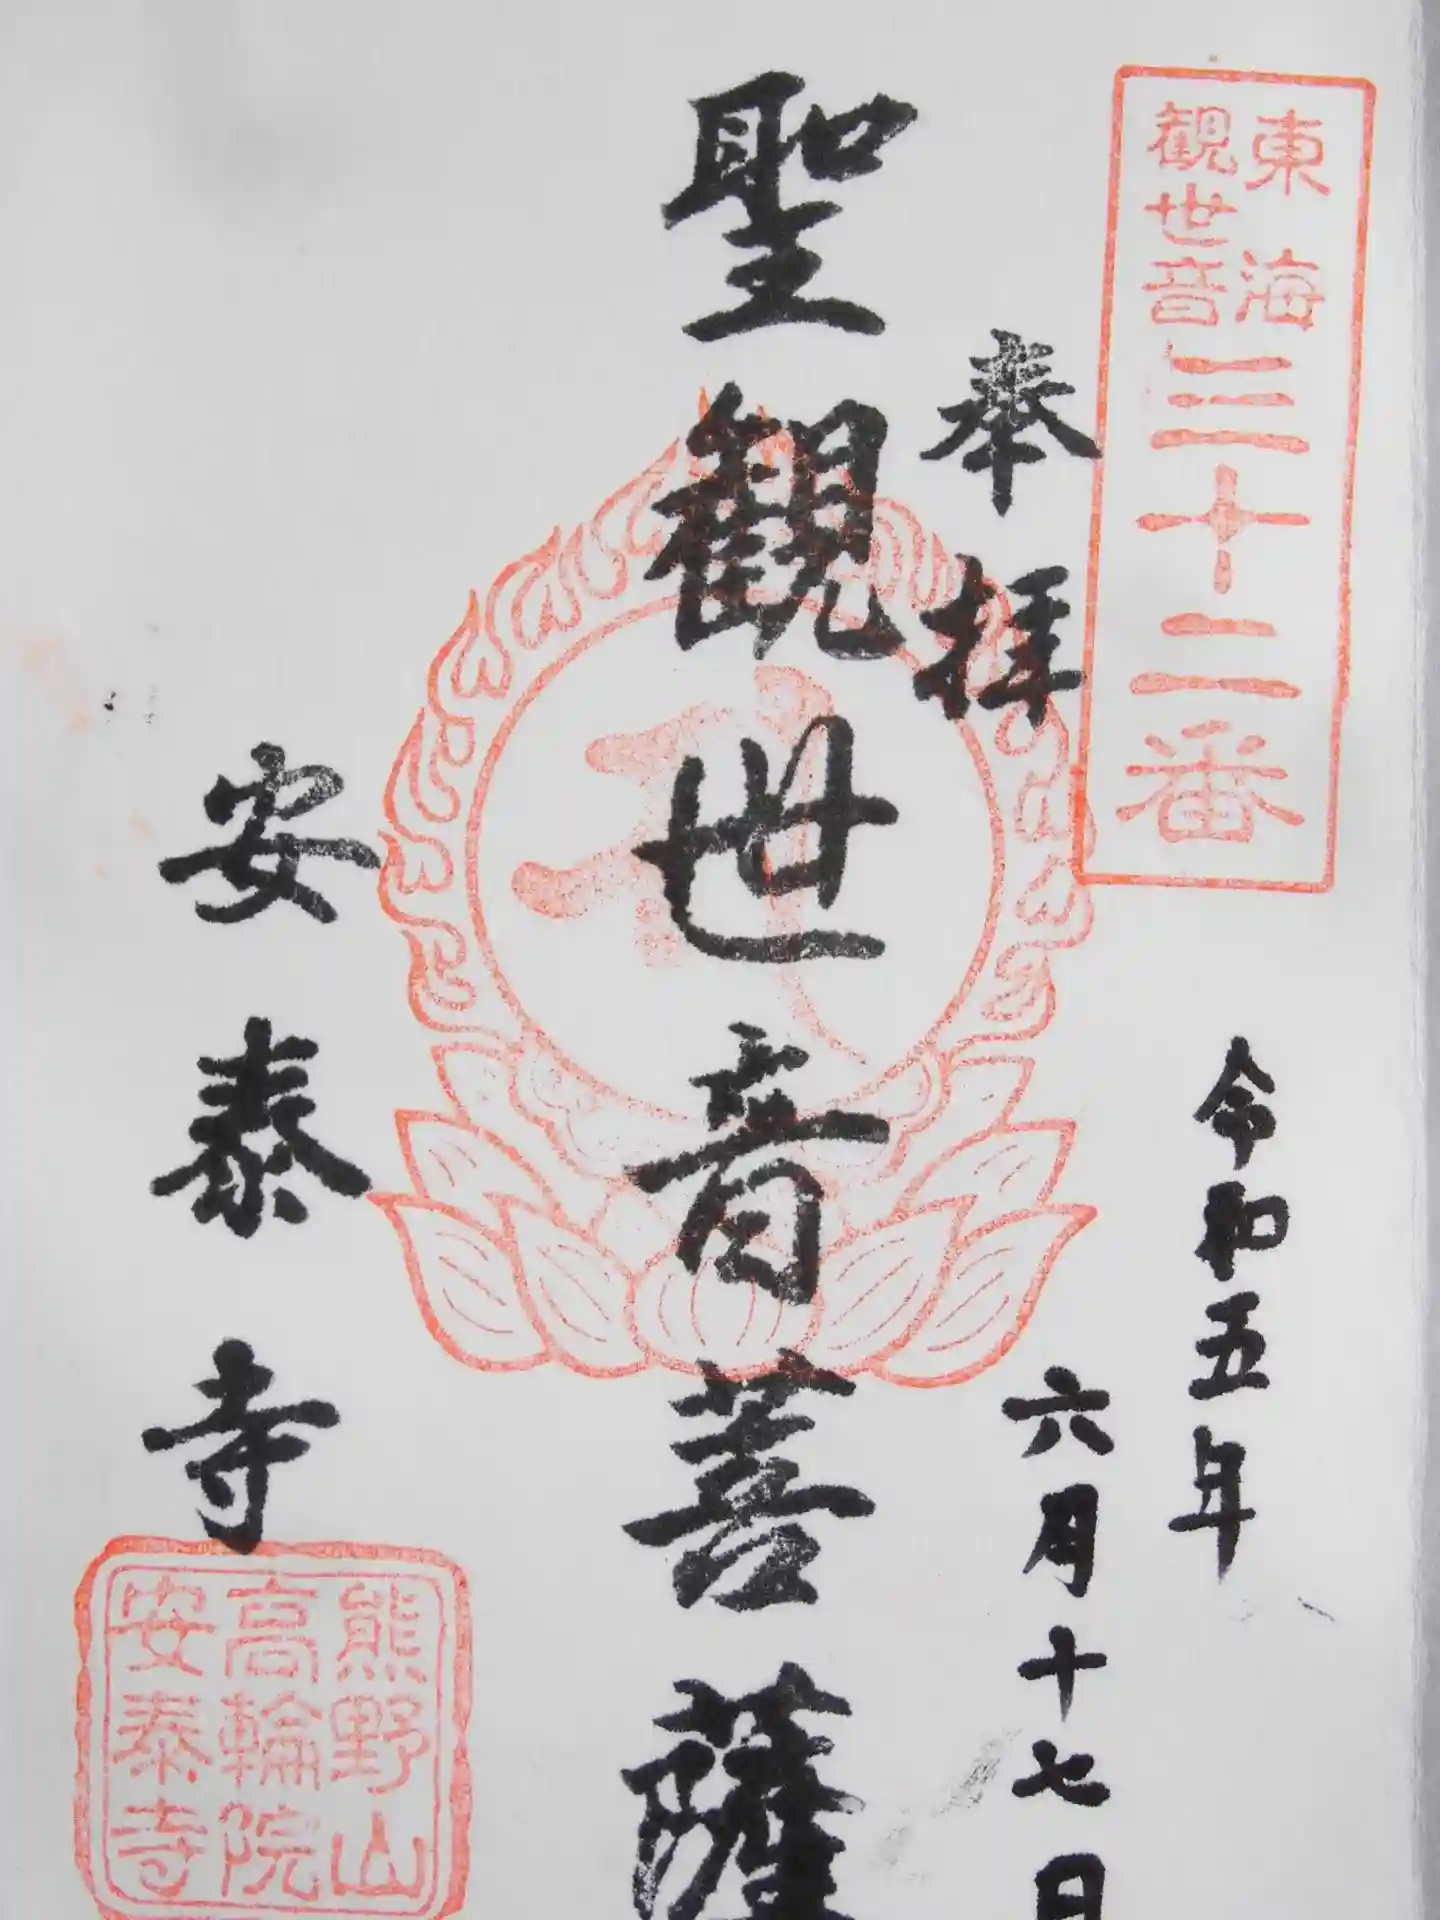 東海
観世音
三十二番
奉拝
令和五年
六月十七日
聖観世音菩薩
安泰寺
熊野山
高輪院
安泰寺